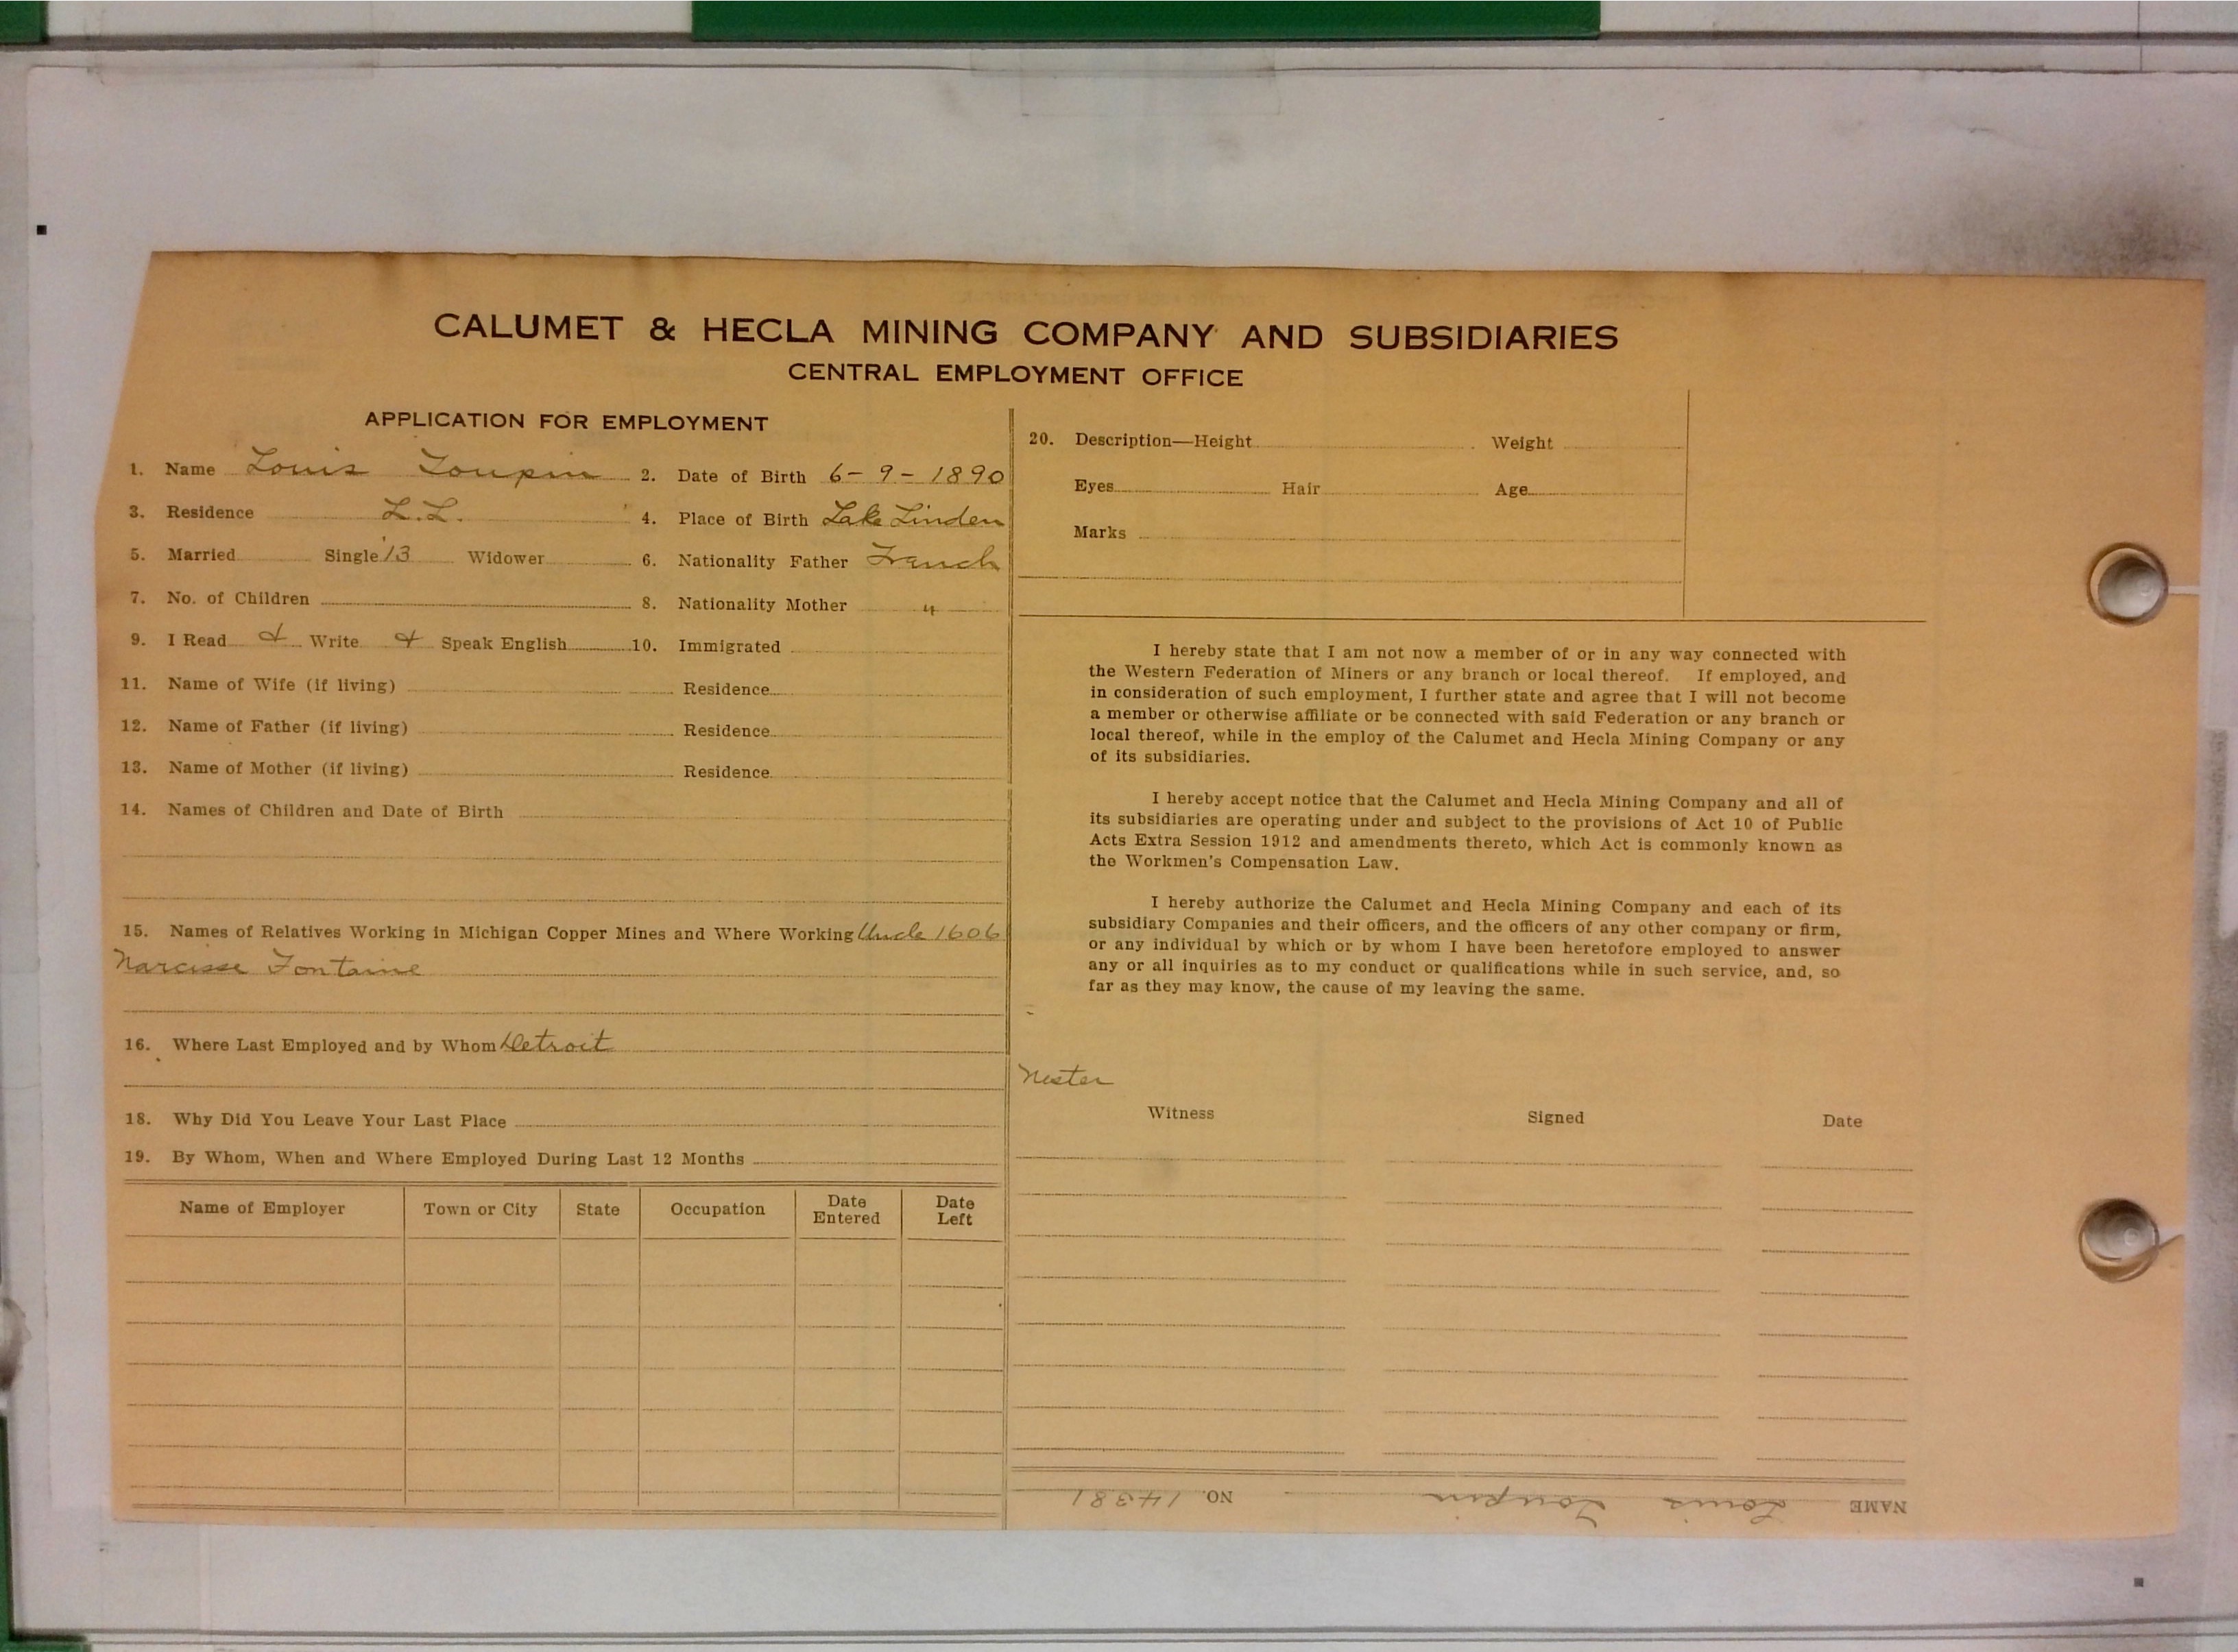 CALUMET & HECLA MINING COMPANY AND SUBSIDIARIES
CENTRAL EMPLOYMENT OFFICE
APPLICATION FOR EMPLOYMENT
1. Name Louis Toupin 2. Date of Birth 6-9-1890
3. Residence L.L. 4. Place of Birth Lake Linden
5. Married Single '13 Widower 6. Nationality Father French
7. No. of Children 8. Nationality Mother "
9. I Read & Write & Speak English 10. Immigrated
11. Name of Wife (if living) Residence
12. Name of Father (if living) Residence
13. Name of Mother (if living) Residence
14. Names of Children and Date of Birth
15. Names of Relatives Working in Michigan Copper Mines and Where Working Uncle 1606
Narcisse Fontaine
16. Where Last Employed and by Whom Detroit
18. Why Did You Leave Your Last Place
19. By Whom, When and Where Employed During Last 12 Months
Name of Employer Town or City State Occupation Date Entered Date Left
20. Description—Height Weight
Eyes Hair Age
Marks
I hereby state that I am not now a member of or in any way connected with
the Western Federation of Miners or any branch or local thereof. If employed, and
in consideration of such employment, I further state and agree that I will not become
a member or otherwise affiliate or be connected with said Federation or any branch or
local thereof, while in the employ of the Calumet and Hecla Mining Company or any
of its subsidiaries.
I hereby accept notice that the Calumet and Hecla Mining Company and all of
its subsidiaries are operating under and subject to the provisions of Act 10 of Public
Acts Extra Session 1912 and amendments thereto, which Act is commonly known as
the Workmen's Compensation Law.
I hereby authorize the Calumet and Hecla Mining Company and each of its
subsidiary Companies and their officers, and the officers of any other company or firm,
or any individual by which or by whom I have been heretofore employed to answer
any or all inquiries as to my conduct or qualifications while in such service, and, so
far as they may know, the cause of my leaving the same.
Nester
Witness Signed Date
NAME Louis Toupin NO. 14381